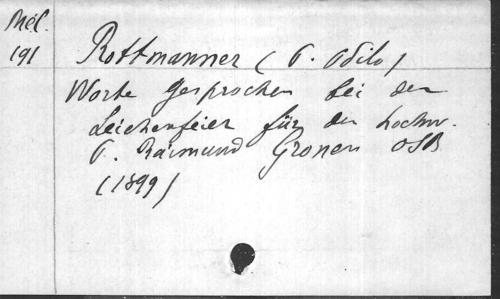 Mél.
191
Rottmanner (P. Odilo)
Worte gesprochen bei der
Leichenfeier für den hochw.
P. Raimund Gronen OSB
(1899)